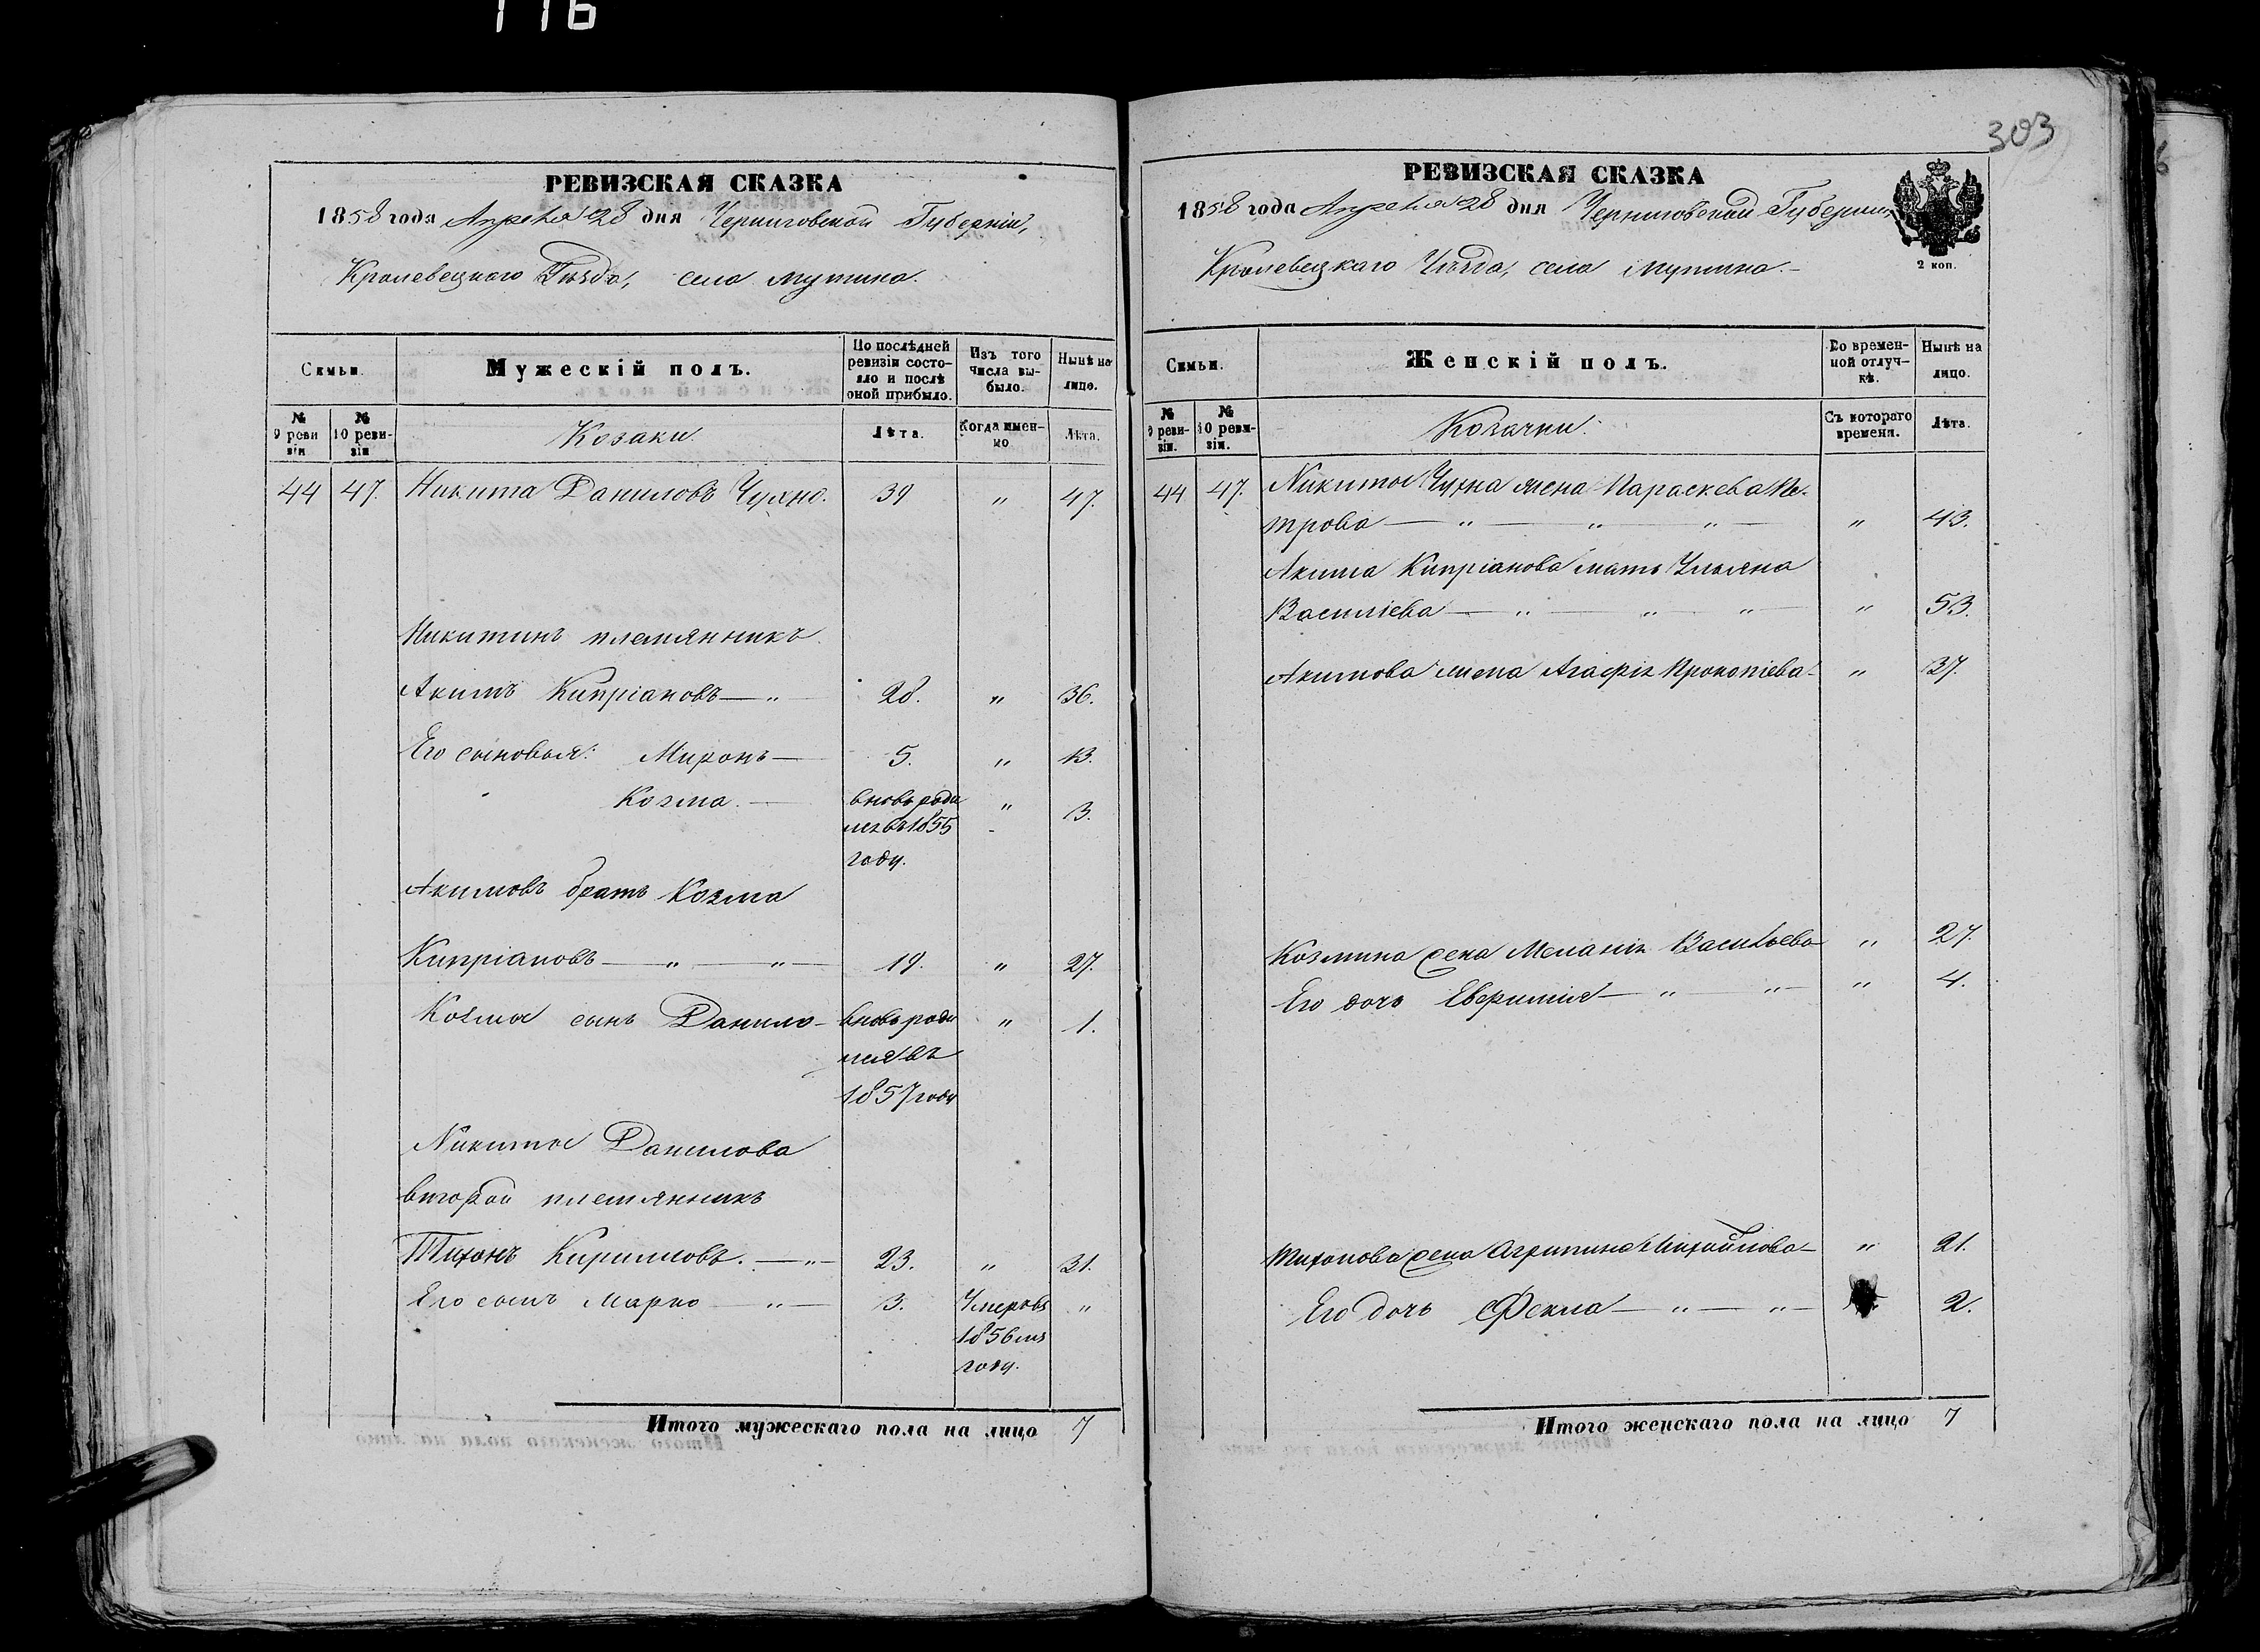 116
303
РЕВИЗСКАЯ СКАЗКА
1858 года Апреля 28 дня Черниговской Губерніи,
Кролевецкаго Уѣзда, села Мутина.
Семьи.
Мужескій полъ.
По послѣдней ревизіи состояло и послѣ оной прибыло.
Изъ того числа выбыло.
Нынѣ на лицо.
№ 9 ревизіи
№ 10 ревизіи
Козаки.
Лѣта.
Когда именно
Лѣта.
44 47. Никита Даниловъ Чухно. 39 " 47.
Никитинъ племянникъ
Акимъ Кипріановъ — " 28. " 36.
Его сыновья: Миронъ — 5. " 13.
Козма. — вновь роди " 3.
лся въ 1855
году.
Акимовъ братъ Козма
Кипріановъ — " — " — 19. " 27.
Козмы сынъ Данило — вновь роди " 1.
лся въ
1857 году
Никиты Данилова
второй племянникъ
Тихонъ Кириловъ. — " — 23. " 31.
Его сынъ Марко — " — 3. Умеръ въ "
1856 мъ
году.
Итого мужескаго пола на лицо 7
РЕВИЗСКАЯ СКАЗКА
1858 года Апреля 28 дня Черниговской Губерніи,
Кролевецкаго Уѣзда, села Мутина. —
2 коп.
Семьи.
Женскій полъ.
Во временной отлучкѣ.
Нынѣ на лицо.
№ 9 ревизіи.
№ 10 ревизіи.
Козачки.
Съ котораго времени.
Лѣта.
44 47. Никиты Чухна жена Параскева Пе-
трова — " — " — " — " 43.
Акима Кипріанова мать Ульяна
Василіева — " — " — " " 53.
Акимова жена Агафія Прокопіева - " 37.
Козмина жена Меланія Васильева — " 27.
Его дочь Евфимія — " — " — " 4.
Тихонова жена Агрипина Михайлова — " 21.
Его дочь Фекла — " — " — 2.
Итого женскаго пола на лицо 7